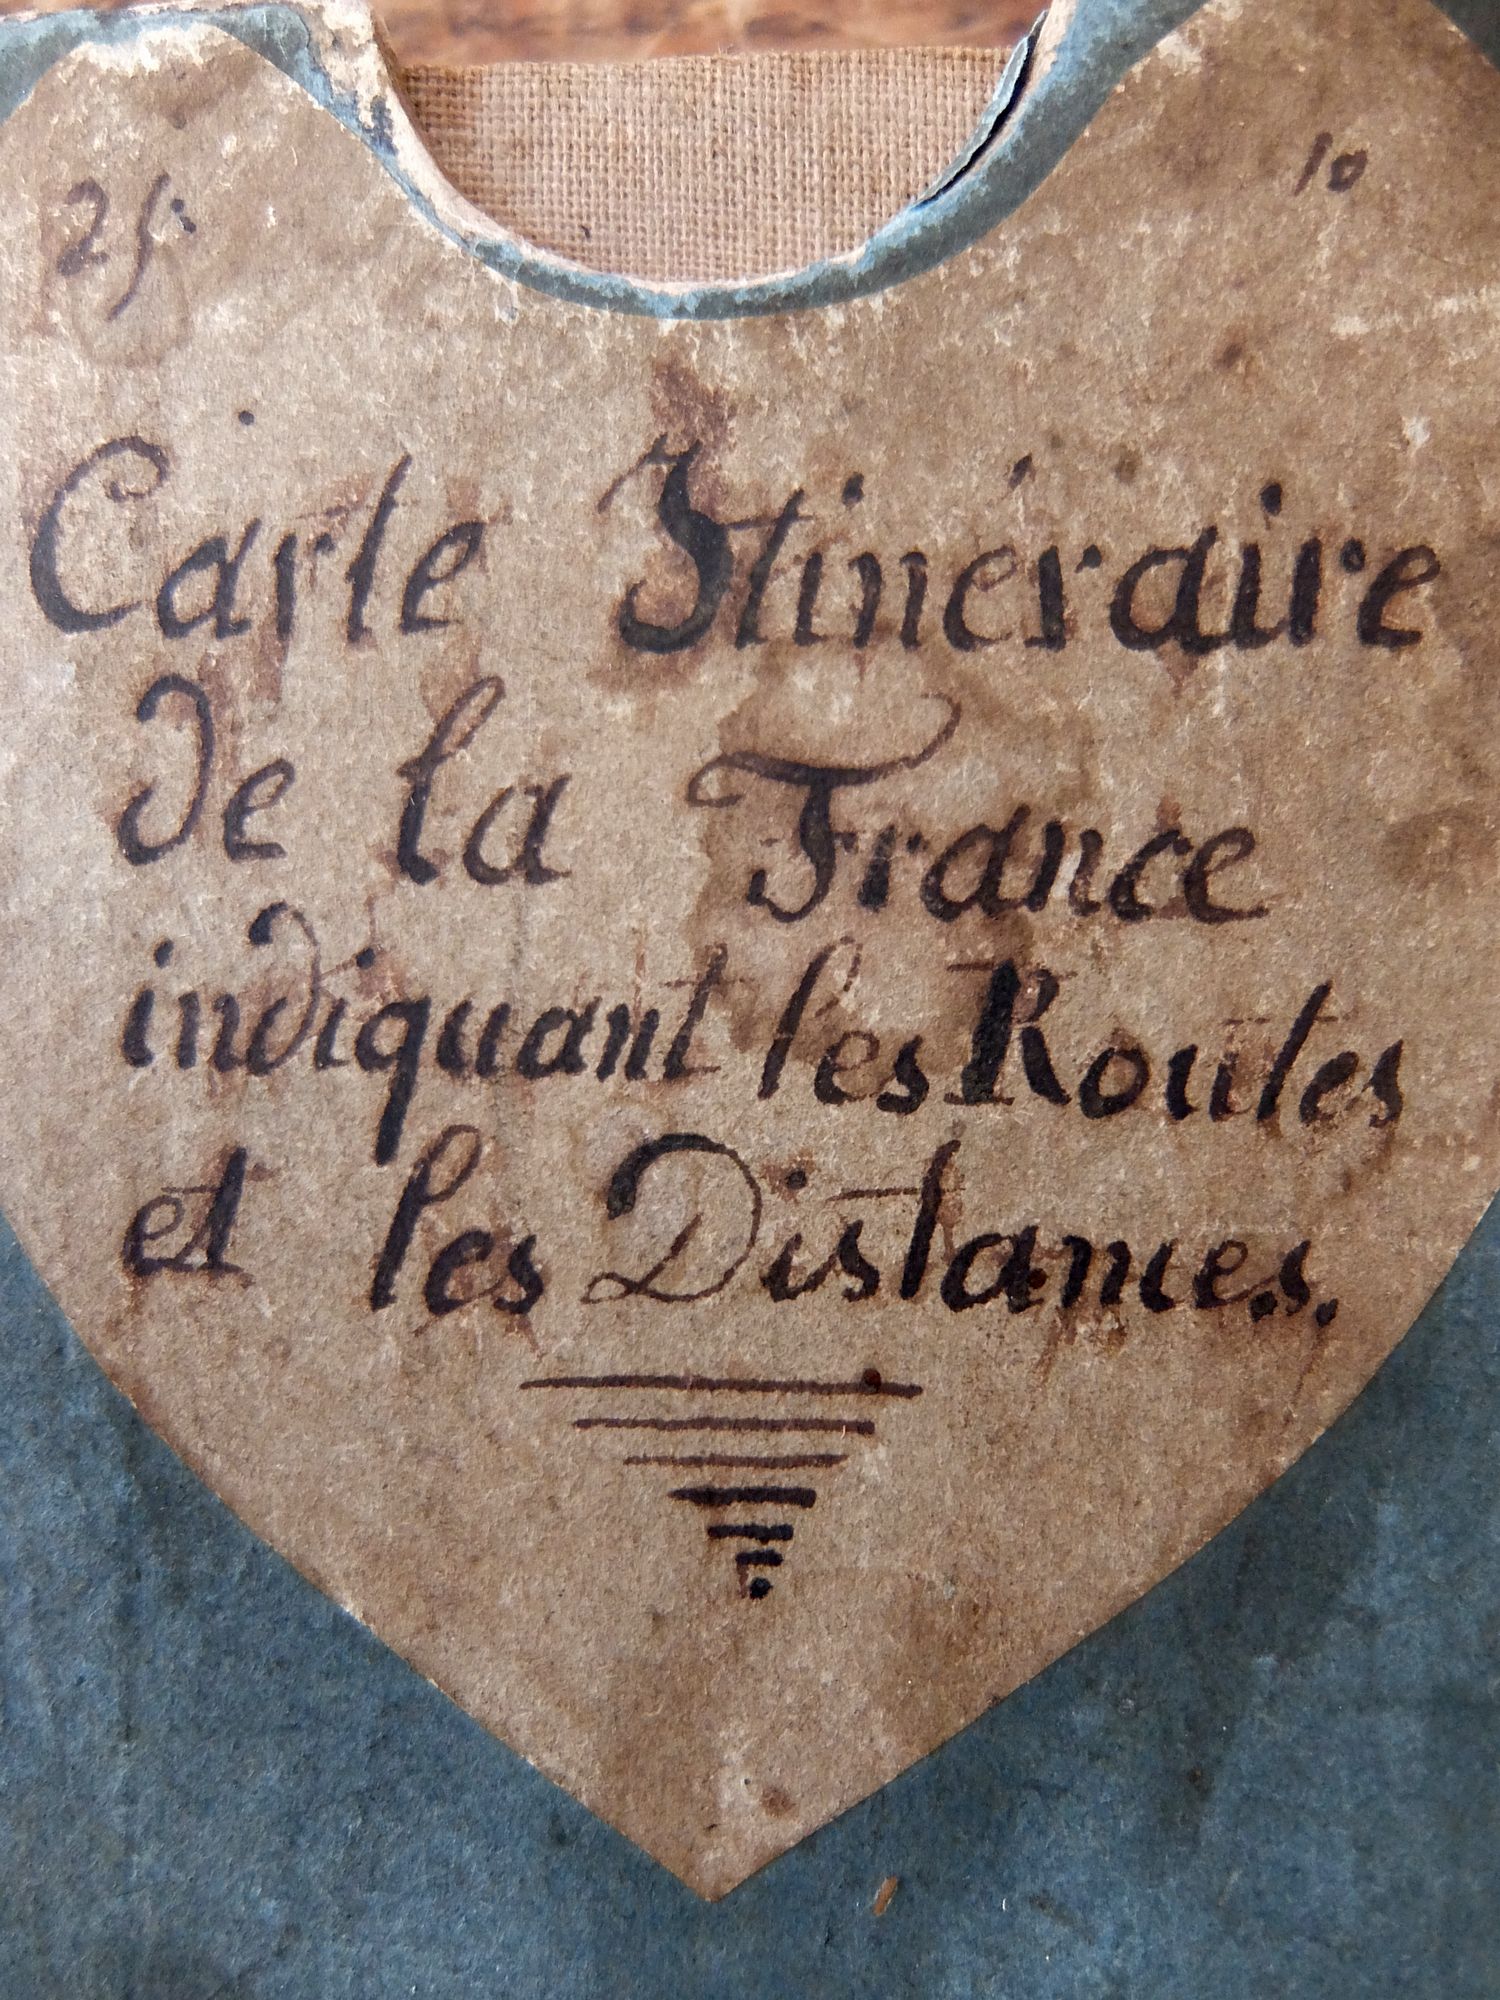 25:
10
Carte Itinéraire
de la France
indiquant les Routes
et les Distances.